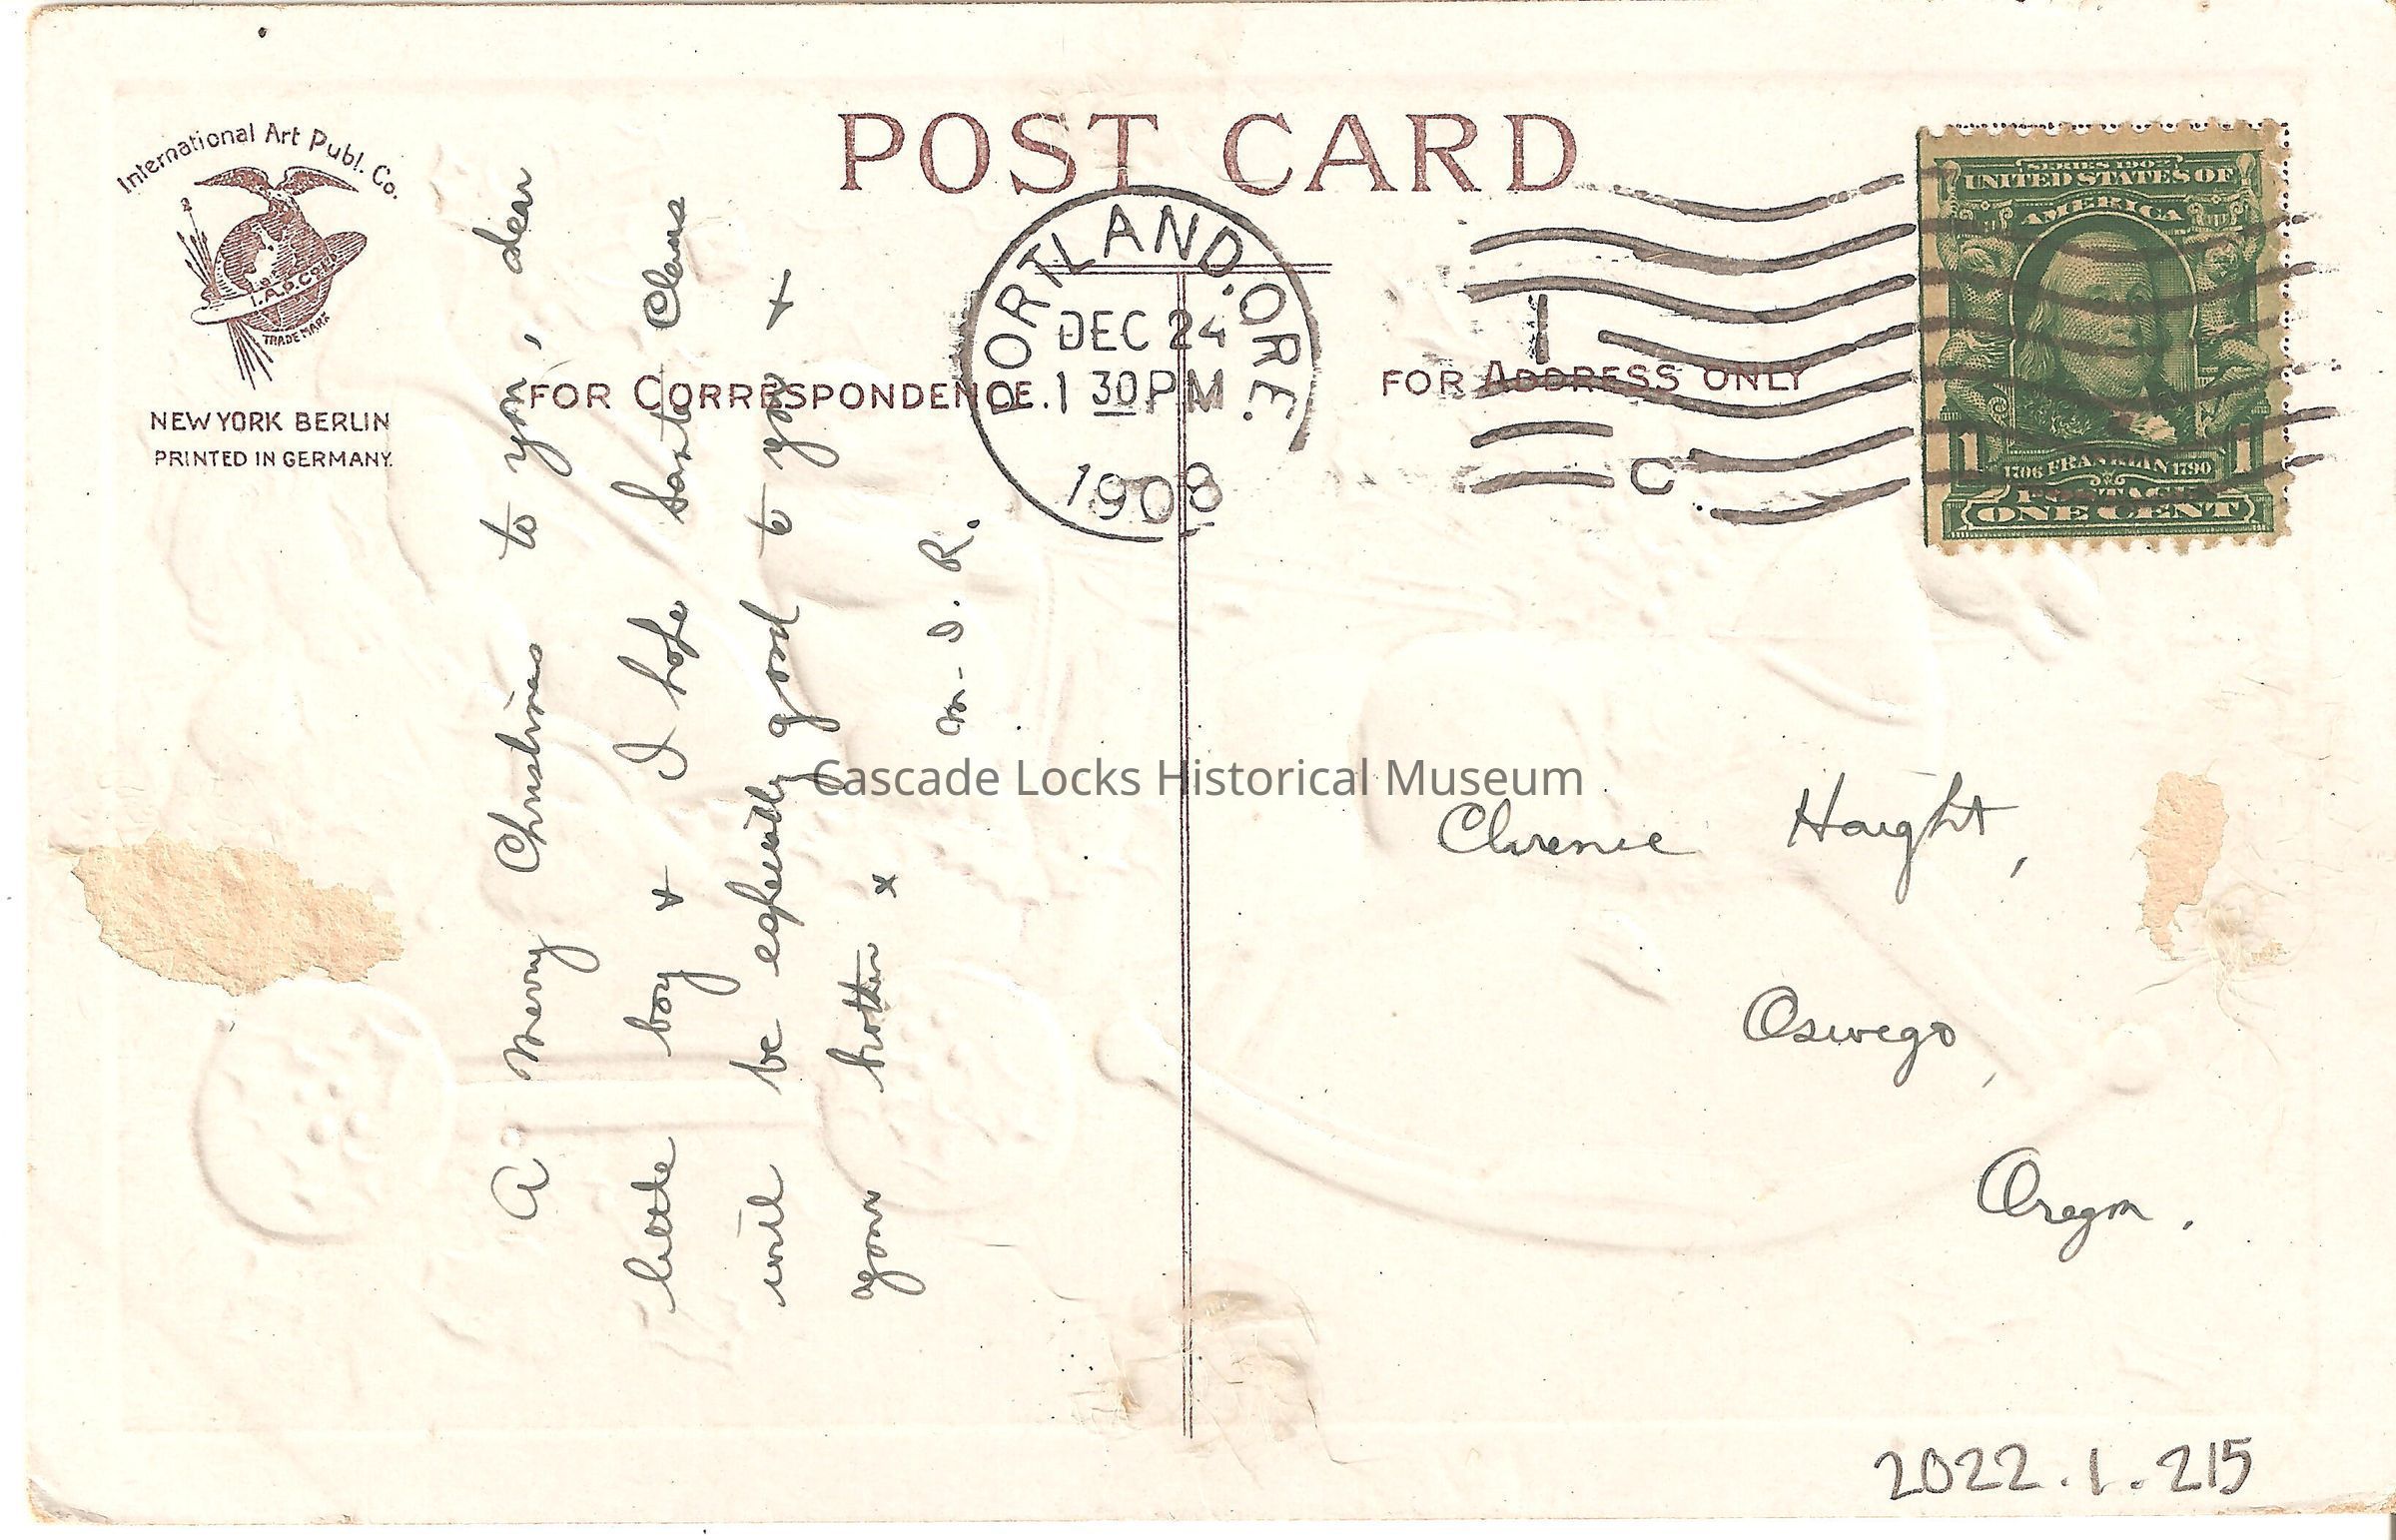 POST CARD
International Art Publ. Co.
I.A.P.Co.
TRADE MARK
NEW YORK BERLIN
PRINTED IN GERMANY.
FOR CORRESPONDENCE.
FOR ADDRESS ONLY
PORTLAND, ORE.
DEC 24
1 30 PM
1908
1
C
SERIES 1902
UNITED STATES OF
AMERICA
1 1706 FRANKLIN 1790 1
POSTAGE
ONE CENT
A Merry Christmas to you, dear
little boy & I hope Santa Claus
will be especially good to you &
your brother x
M. I. R.
Cascade Locks Historical Museum
Clarence Haight,
Oswego,
Oregon.
2022.1.215